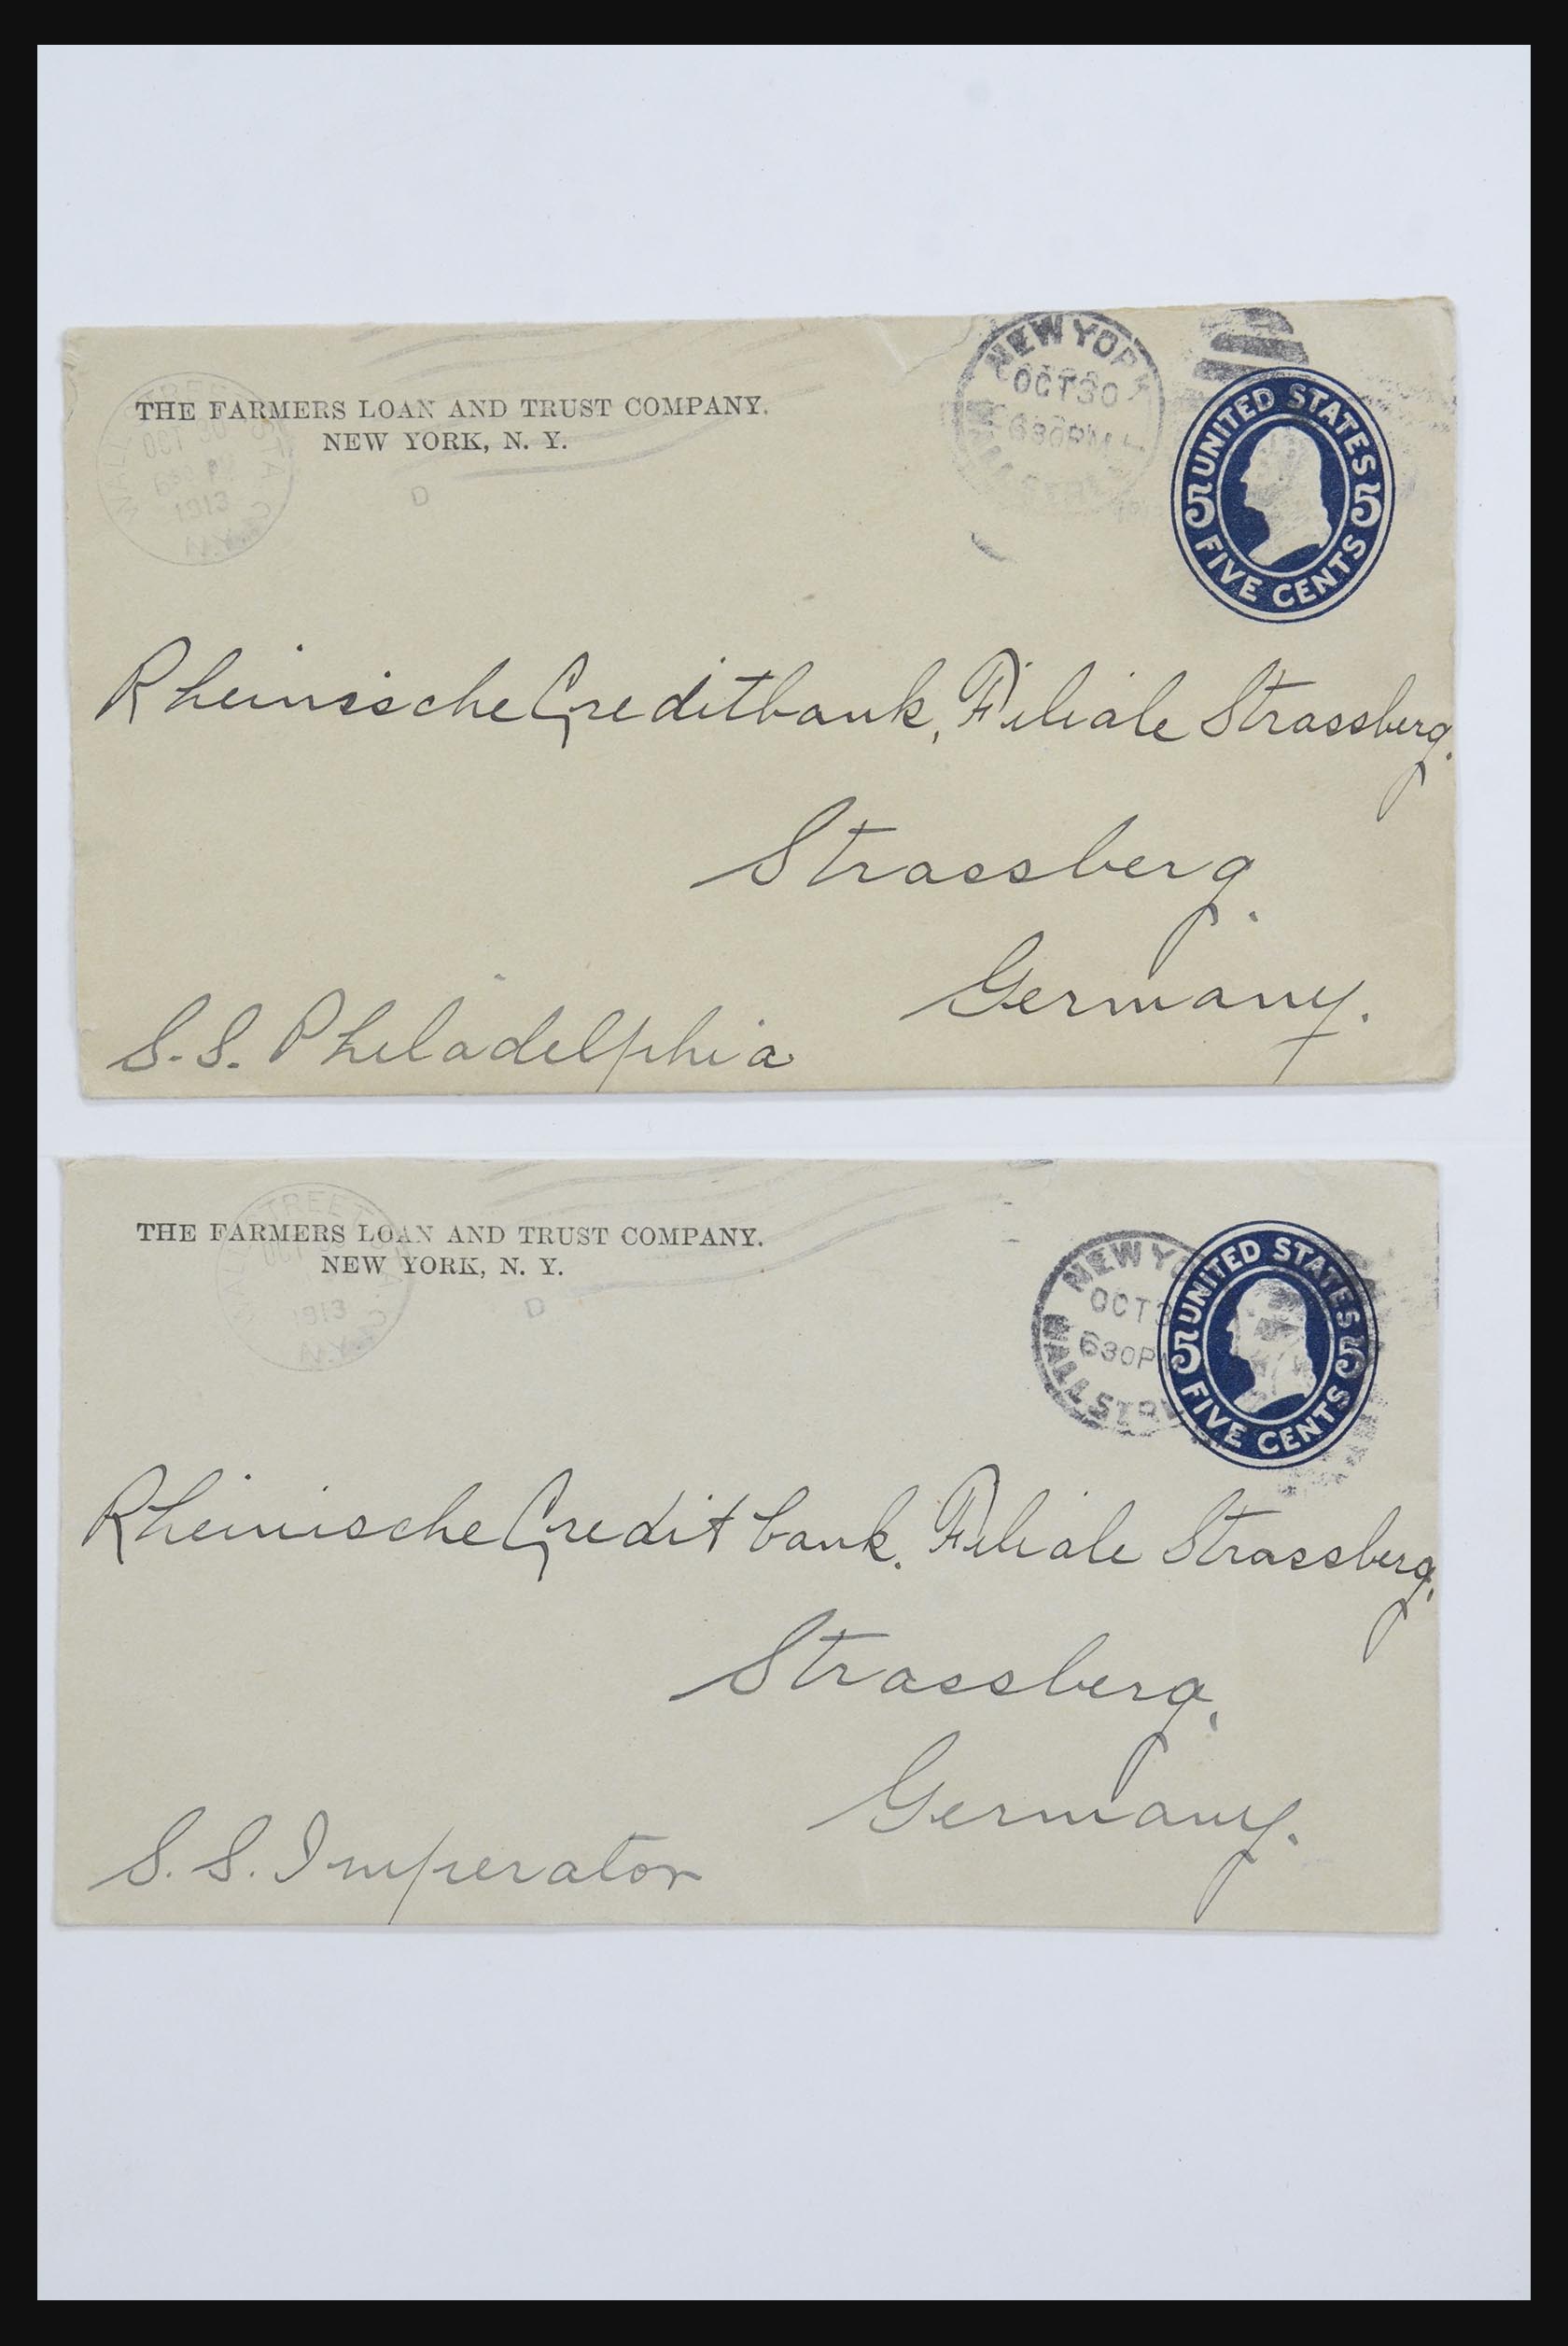 THE FARMERS LOAN AND TRUST COMPANY.
NEW YORK, N. Y.
WALL STREET STA.
OCT 30
1913
N.Y.
D
NEW YORK
OCT 30
630PM
UNITED STATES
5 5
FIVE CENTS
Rheinische Creditbank, Filiale Strassberg.
Strassberg.
Germany.
S.S. Philadelphia
THE FARMERS LOAN AND TRUST COMPANY.
NEW YORK, N. Y.
WALL STREET
OCT
1913
N.Y.
D
NEW YO
OCT 3
630P
WALL STR
UNITED STATES
5 5
FIVE CENTS
Rheinische Credit bank. Filiale Strassberg.
Strassberg,
Germany.
S.S. Imperator